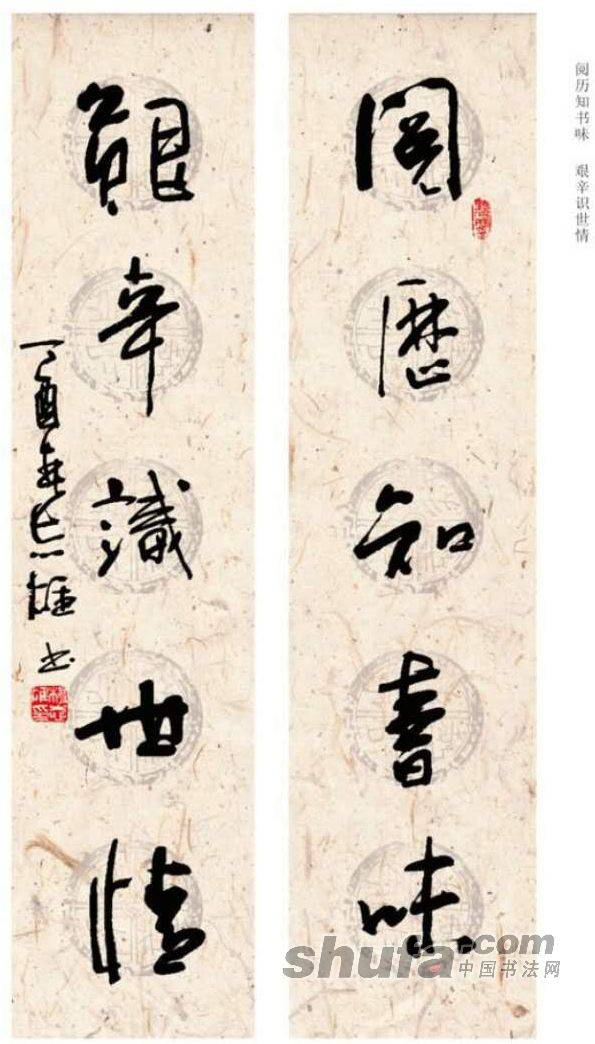 阅历知书味 艰辛识世情
閱歷知書味
艱辛識世情
丁酉
書
shufa.com
中国书法网